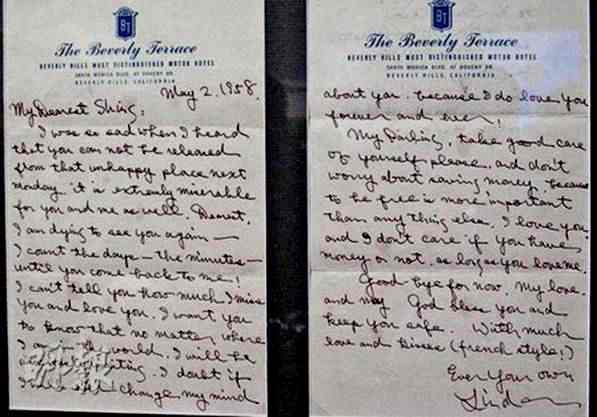 BT
The Beverly Terrace
BEVERLY HILLS MOST DISTINGUISHED MOTOR HOTEL
SANTA MONICA BLVD. AT DOHENY DR.
BEVERLY HILLS, CALIFORNIA
May 2, 1958.
My Dearest Shing:
I was so sad when I heard
that you can not be released
from that unhappy place next
monday. it is extremly miserable
for you and me as well. Dearest,
I am dying to see you again —
I count the days — the minutes —
until you come back to me!
I can't tell you how much I miss
you and love you. I want you
to know that no matter where
I am in the world. I will be
waiting. I doubt if
I will change my mind
BT
The Beverly Terrace
BEVERLY HILLS MOST DISTINGUISHED MOTOR HOTEL
SANTA MONICA BLVD. AT DOHENY DR.
BEVERLY HILLS, CALIFORNIA
about you. because I do love you
forever and ever!
My Darling, take good care
of yourself please. and don't
worry about saving money, because
to be free is more important
than any thing else. I love you
and I don't care if you have
money or not. as long as you love me.
Good-bye for now. My love.
and may God bless you and
keep you safe. With much
love and kisses (french style!)
Ever Your own
Linda